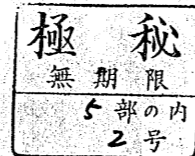 極秘
無期限
5部の内
2号